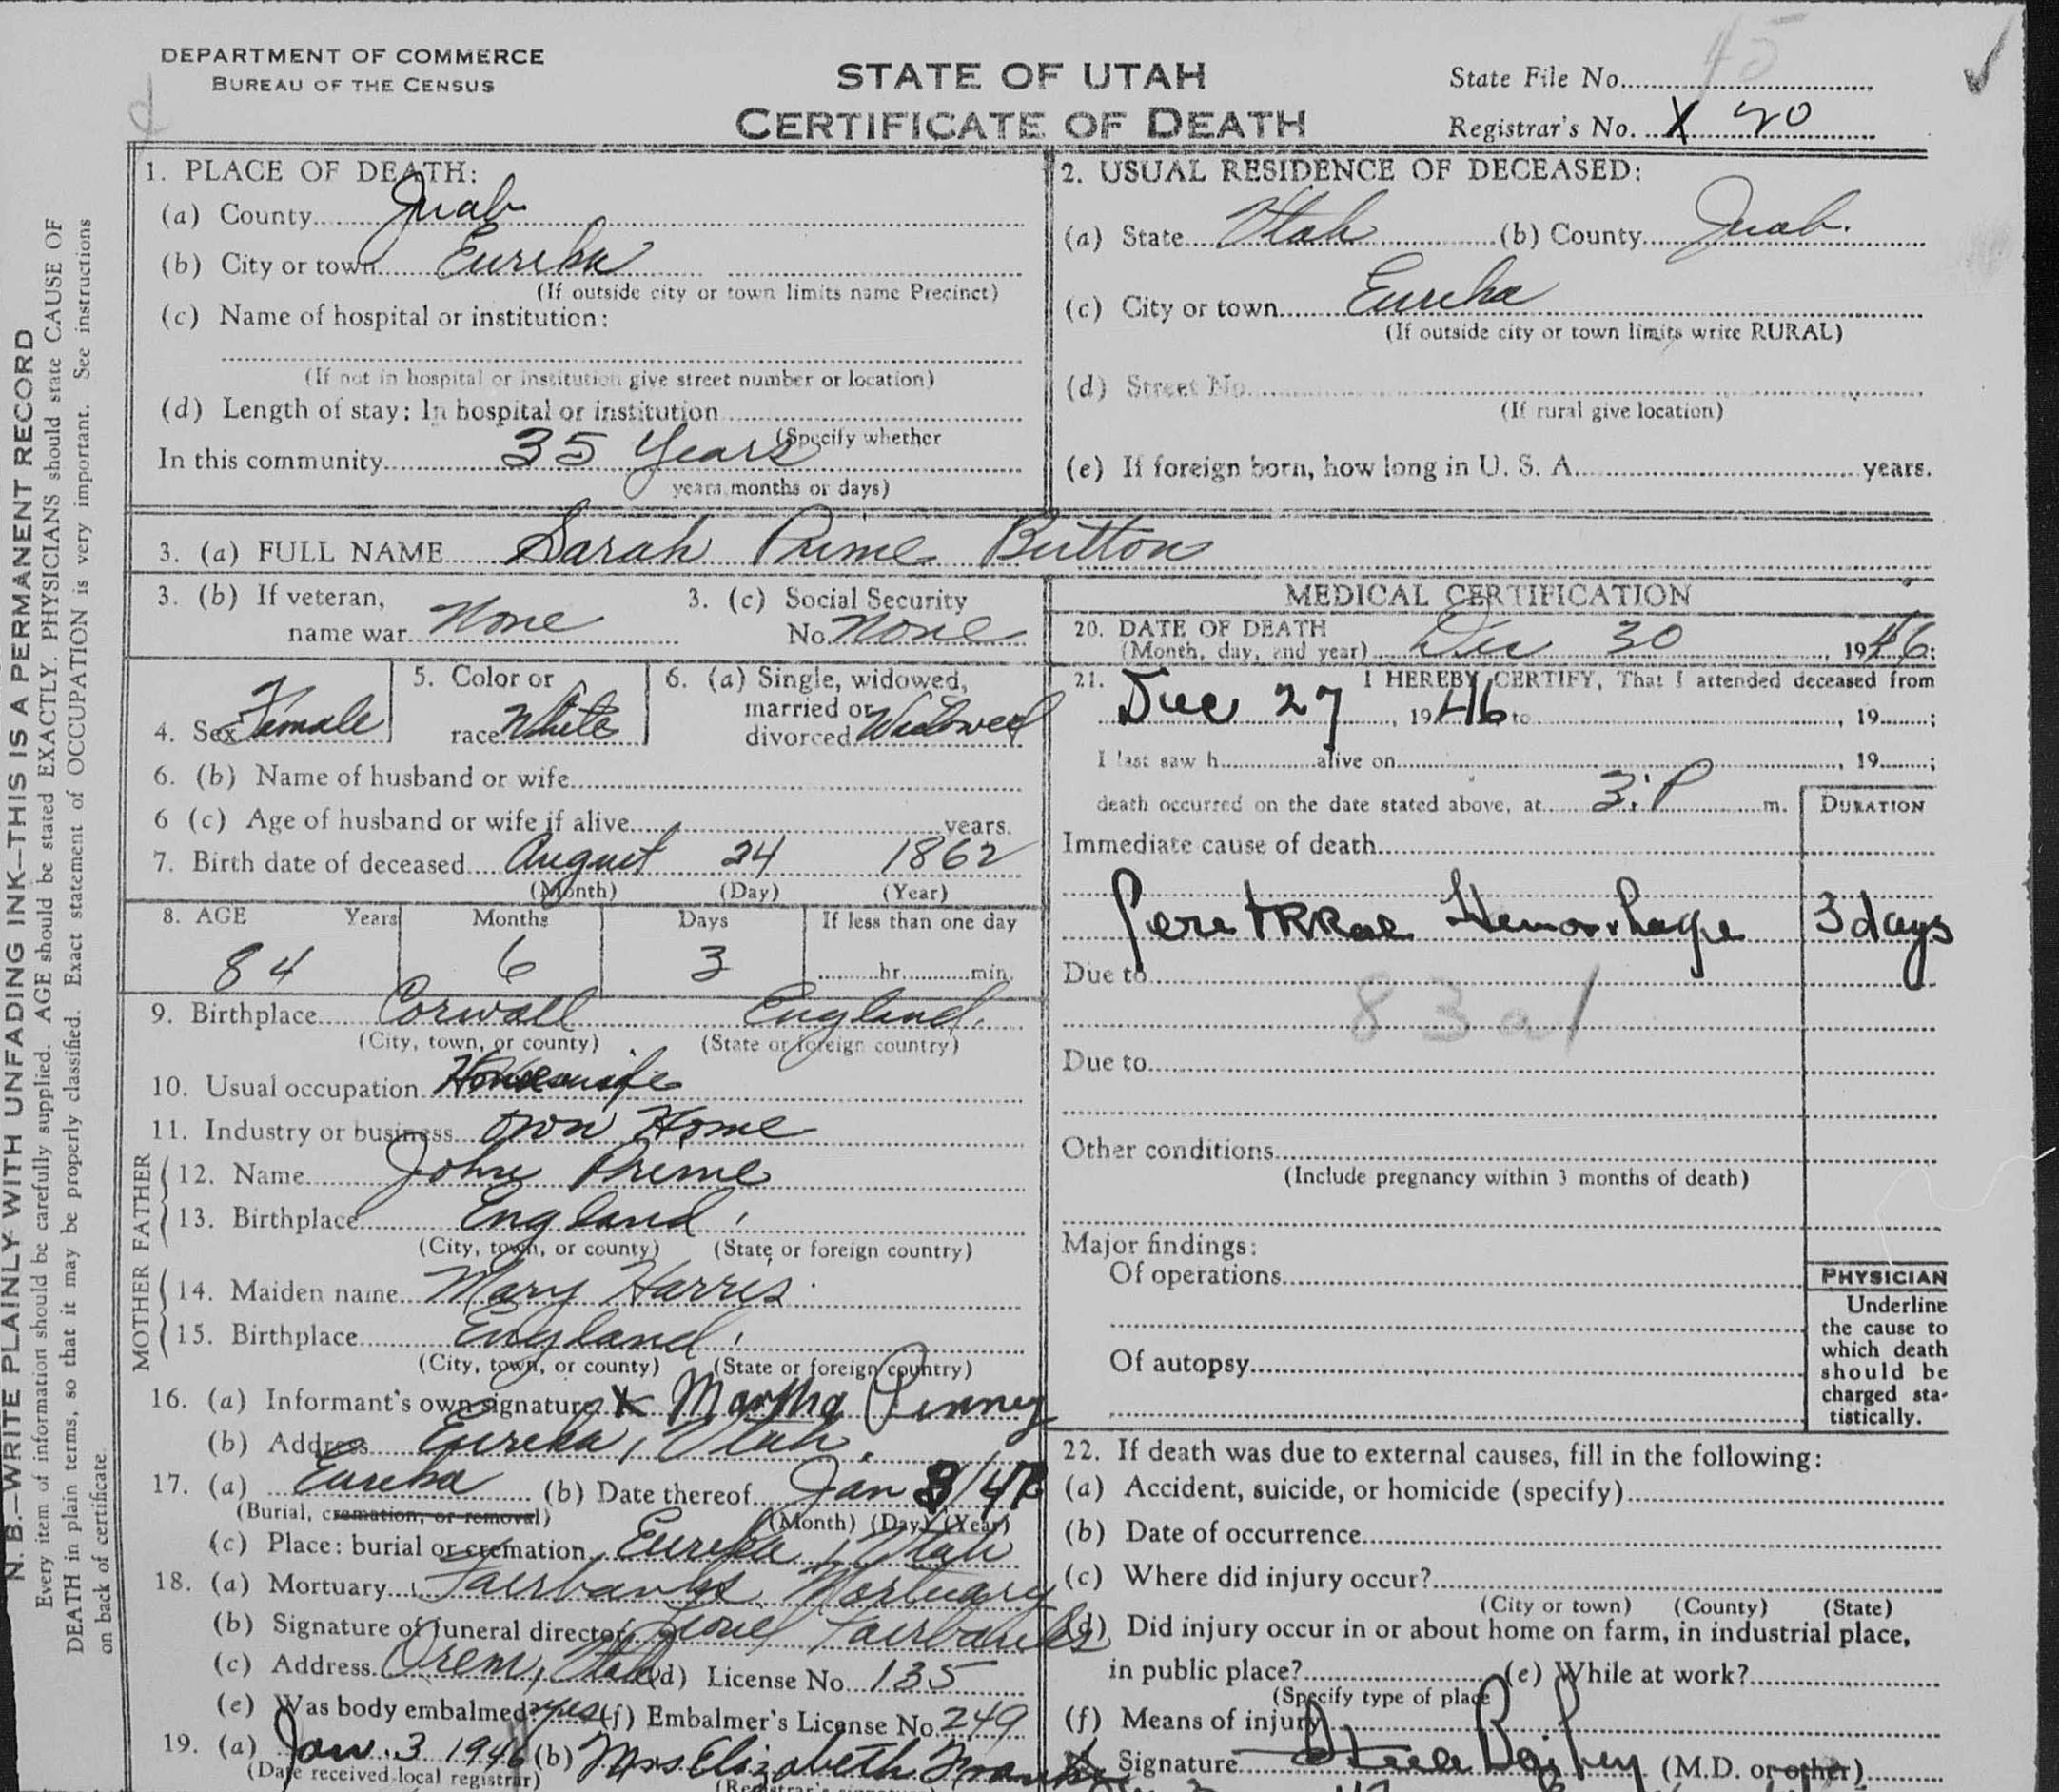 DEPARTMENT OF COMMERCE
BUREAU OF THE CENSUS
STATE OF UTAH
CERTIFICATE OF DEATH
State File No. 45
Registrar's No. X 20
N. B.—WRITE PLAINLY WITH UNFADING INK—THIS IS A PERMANENT RECORD
Every item of information should be carefully supplied. AGE should be stated EXACTLY. PHYSICIANS should state CAUSE OF
DEATH in plain terms, so that it may be properly classified. Exact statement of OCCUPATION is very important. See instructions
on back of certificate.
1. PLACE OF DEATH:
(a) County Juab
(b) City or town Eureka
(If outside city or town limits name Precinct)
(c) Name of hospital or institution:
(If not in hospital or institution give street number or location)
(d) Length of stay: In hospital or institution
(Specify whether
In this community 35 Years
years, months or days)
2. USUAL RESIDENCE OF DECEASED:
(a) State Utah (b) County Juab.
(c) City or town Eureka
(If outside city or town limits write RURAL)
(d) Street No.
(If rural give location)
(e) If foreign born, how long in U. S. A. years.
3. (a) FULL NAME Sarah Prime Button
3. (b) If veteran,
name war None
3. (c) Social Security
No. None
4. Sex Female
5. Color or
race White
6. (a) Single, widowed,
married or
divorced Widowed
6. (b) Name of husband or wife
6 (c) Age of husband or wife if alive years.
7. Birth date of deceased August 24 1862
(Month) (Day) (Year)
8. AGE Years Months Days If less than one day
84 6 3 hr. min.
9. Birthplace Corwall England.
(City, town, or county) (State or foreign country)
10. Usual occupation Housewife
11. Industry or business own Home
FATHER
12. Name John Prime
13. Birthplace England
(City, town, or county) (State or foreign country)
MOTHER
14. Maiden name Mary Harris
15. Birthplace England
(City, town, or county) (State or foreign country)
16. (a) Informant's own signature X Martha Pinney
(b) Address Eureka, Utah.
17. (a) Eureka (b) Date thereof Jan 3/47
(Burial, cremation, or removal) (Month) (Day) (Year)
(c) Place: burial or cremation Eureka, Utah
18. (a) Mortuary Fairbanks Mortuary
(b) Signature of funeral director Fairbanks
(c) Address Orem, Utah (d) License No. 135
(e) Was body embalmed? yes (f) Embalmer's License No. 249
19. (a) Jan. 3 1946 (b) Mrs Elizabeth
(Date received local registrar)
MEDICAL CERTIFICATION
20. DATE OF DEATH
(Month, day, and year) Dec 30, 1946;
21. I HEREBY CERTIFY, That I attended deceased from
Dec 27, 1946 to , 19 ;
I last saw h alive on , 19 ;
death occurred on the date stated above, at 3:P m.
DURATION
Immediate cause of death
Hemorrhage 3 days
Due to
83a1
Due to
Other conditions
(Include pregnancy within 3 months of death)
Major findings:
Of operations
Of autopsy
PHYSICIAN
Underline
the cause to
which death
should be
charged sta-
tistically.
22. If death was due to external causes, fill in the following:
(a) Accident, suicide, or homicide (specify)
(b) Date of occurrence
(c) Where did injury occur?
(City or town) (County) (State)
(d) Did injury occur in or about home on farm, in industrial place,
in public place? (e) While at work?
(Specify type of place
(f) Means of injury
Signature Steele Bailey (M.D. or other)